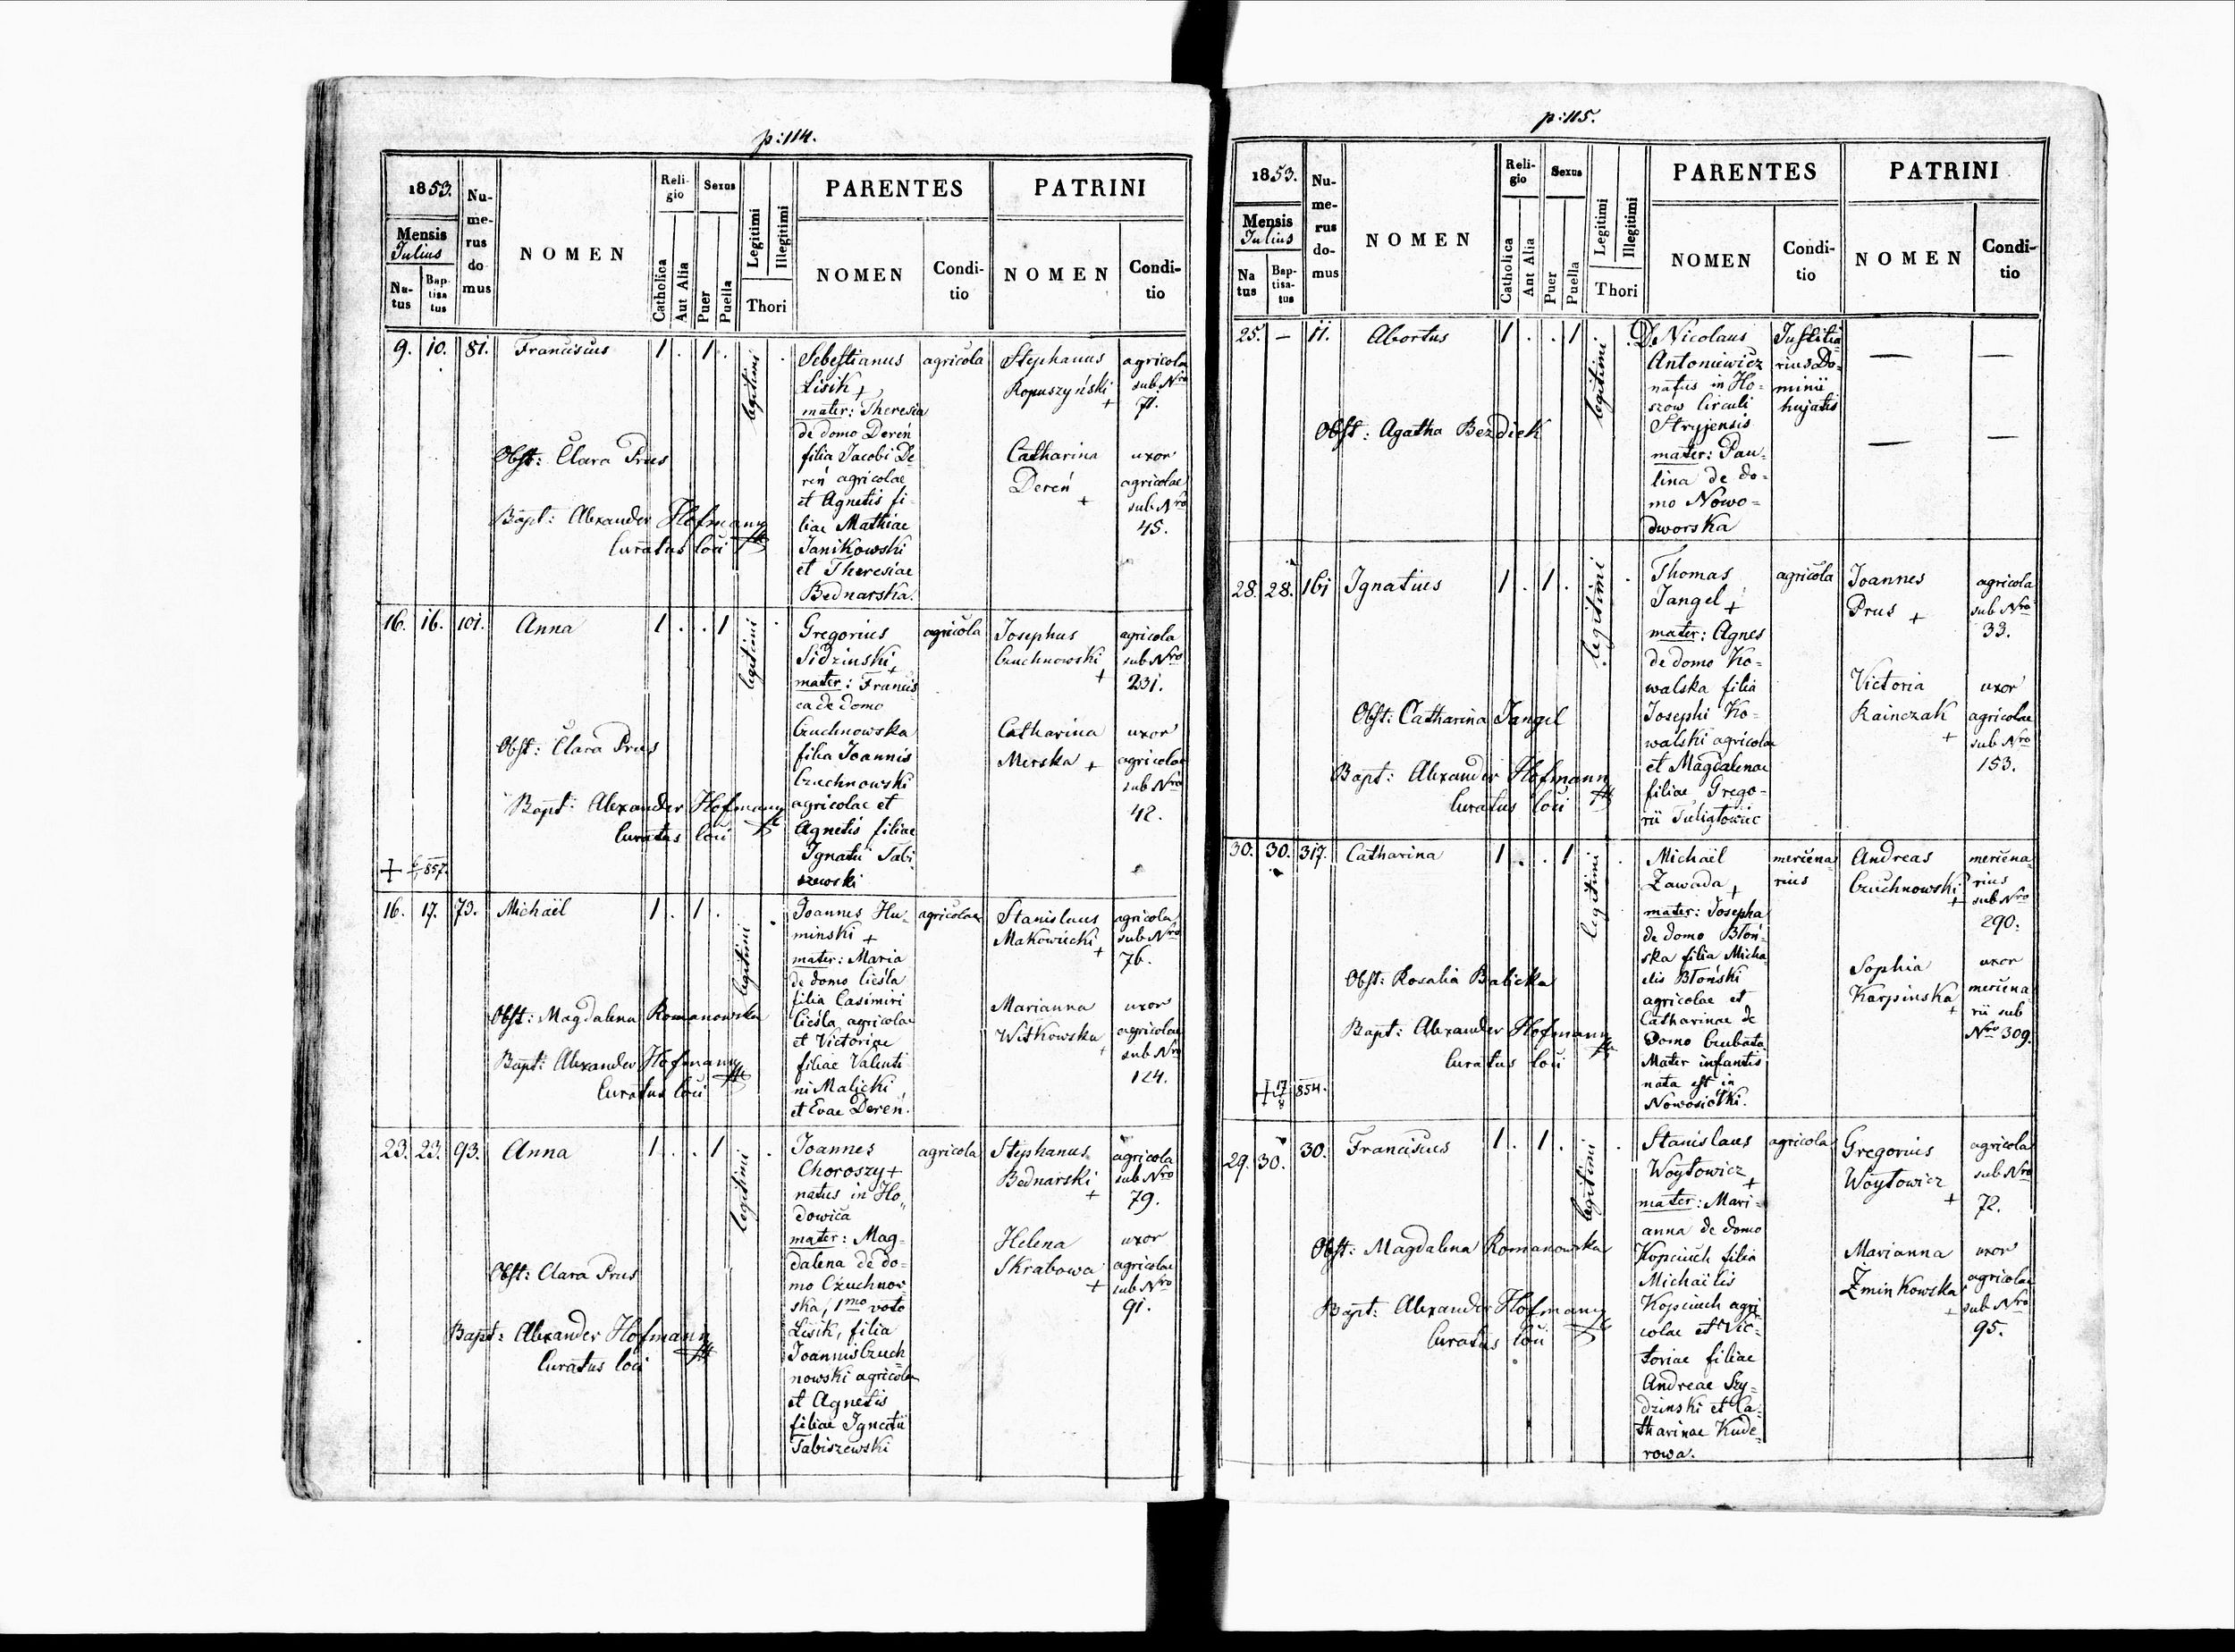 p: 114.
1853.
Mensis
Julius
Na-
tus
Bap-
tisa
tus
Nu-
me-
rus
do
mus
NOMEN
Reli-
gio
Catholica
Aut Alia
Sexus
Puer
Puella
Legitimi
Illegitimi
Thori
PARENTES
NOMEN
Condi-
tio
PATRINI
NOMEN
Condi-
tio
9. 10. 81. Franciscus 1 . 1 . legitimi .
Obst: Clara Prus
Bapt: Alexander Hofmann
Curatus loci
Sebestianus
Lisik +
mater: Theresia
de domo Dereń
filia Jacobi De
reń agricolae
et Agnetis fi-
liae Mathiae
Janikowski
et Theresiae
Bednarska.
agricola
Stephanus
Ropuszyński
+
agricola
sub Nro
71.
Catharina
Dereń
+
uxor
agricolae
sub Nro
45.
16. 16. 101. Anna 1 . . 1 legitimi .
Obst: Clara Prus
Bapt: Alexander Hofmann
Curatus loci
+ 857.
Gregorius
Sidzinski +
mater: Francis
ca de domo
Czuchnowska
filia Joannis
Czuchnowski
agricolae et
Agnetis filiae
Ignatii Tabi
szewski
agricola
Josephus
Czuchnowski
+
agricola
sub Nro
231.
Catharina
Mirska +
uxor
agricolae
sub Nro
42.
16. 17. 73. Michaël 1 . 1 . legitimi .
Obst: Magdalena Romanowska
Bapt: Alexander Hofmann
Curatus loci
Joannes Hu-
minski +
mater: Maria
de domo Cieśla
filia Casimiri
Cieśla agricolae
et Victoriae
filiae Valenti
ni Malicki
et Evae Dereń.
agricolae
Stanislaus
Makowiecki
+
agricola
sub Nro
76.
Marianna
Witkowska
+
uxor
agricolae
sub Nro
124.
23. 23. 93. Anna 1 . . 1 legitimi .
Obst: Clara Prus
Bapt: Alexander Hofmann
Curatus loci
Joannes
Choroszy +
natus in Ho
dowica
mater: Mag-
dalena de do-
mo Czuchnow
ska, 1mo voto
Lisik, filia
Joannis Czuch
nowski agricolae
et Agnetis
filiae Ignatii
Tabiszewski
agricola
Stephanus
Bednarski
+
agricola
sub Nro
79.
Helena
Skrabowa
+
uxor
agricolae
sub Nro
91.
p: 115.
1853.
Mensis
Julius
Na
tus
Bap-
tisa-
tus
Nu-
me-
rus
do-
mus
NOMEN
Reli-
gio
Catholica
Aut Alia
Sexus
Puer
Puella
Legitimi
Illegitimi
Thori
PARENTES
NOMEN
Condi-
tio
PATRINI
NOMEN
Condi-
tio
25. — 11. Abortus 1 . . 1 legitimi .
Obst: Agatha Bezdiek
D. Nicolaus
Antoniewicz
natus in Ho-
szow Circuli
Stryjensis
mater: Pau-
lina de do-
mo Nowo-
dworska
Justitia-
rius Do-
minii
hujatis
— —
— —
28. 28. 161 Ignatius 1 . 1 . legitimi .
Obst: Catharina Jangel
Bapt: Alexander Hofmann
Curatus loci
Thomas
Jangel +
mater: Agnes
de domo Ko-
walska filia
Josephi Ko-
walski agricolae
et Magdalenae
filiae Grego-
rii
agricola
Joannes
Prus +
agricola
sub Nro
33.
Victoria
Rainczak
+
uxor
agricolae
sub Nro
153.
30. 30. 317. Catharina 1 . . 1 legitimi .
Obst: Rosalia Balicka
Bapt: Alexander Hofmann
Curatus loci
+ 17/8 854.
Michaël
Zawada +
mater: Josepha
de domo Błoń-
ska filia Micha
elis Błoński
agricolae et
Catharinae de
domo
Mater infantis
nata est in
Nowosiółki.
mercena-
rius
Andreas
Czuchnowski
+
mercena-
rius
sub Nro
290.
Sophia
Karpinska
+
uxor
mercena
rii sub
Nro 309.
29. 30. 30. Franciscus 1 . 1 . legitimi .
Obst: Magdalena Romanowska
Bapt: Alexander Hofmann
Curatus loci
Stanislaus
Woytowicz
+
mater: Mari-
anna de domo
Kopciuch filia
Michaëlis
Kopciuch agri
colae et Vic-
toriae filiae
Andreae Szy-
dzinski et Ca-
tharinae Kude-
rowa.
agricola
Gregorius
Woytowicz
+
agricola
sub Nro
72.
Marianna
Żminkowska
+
uxor
agricolae
sub Nro
95.